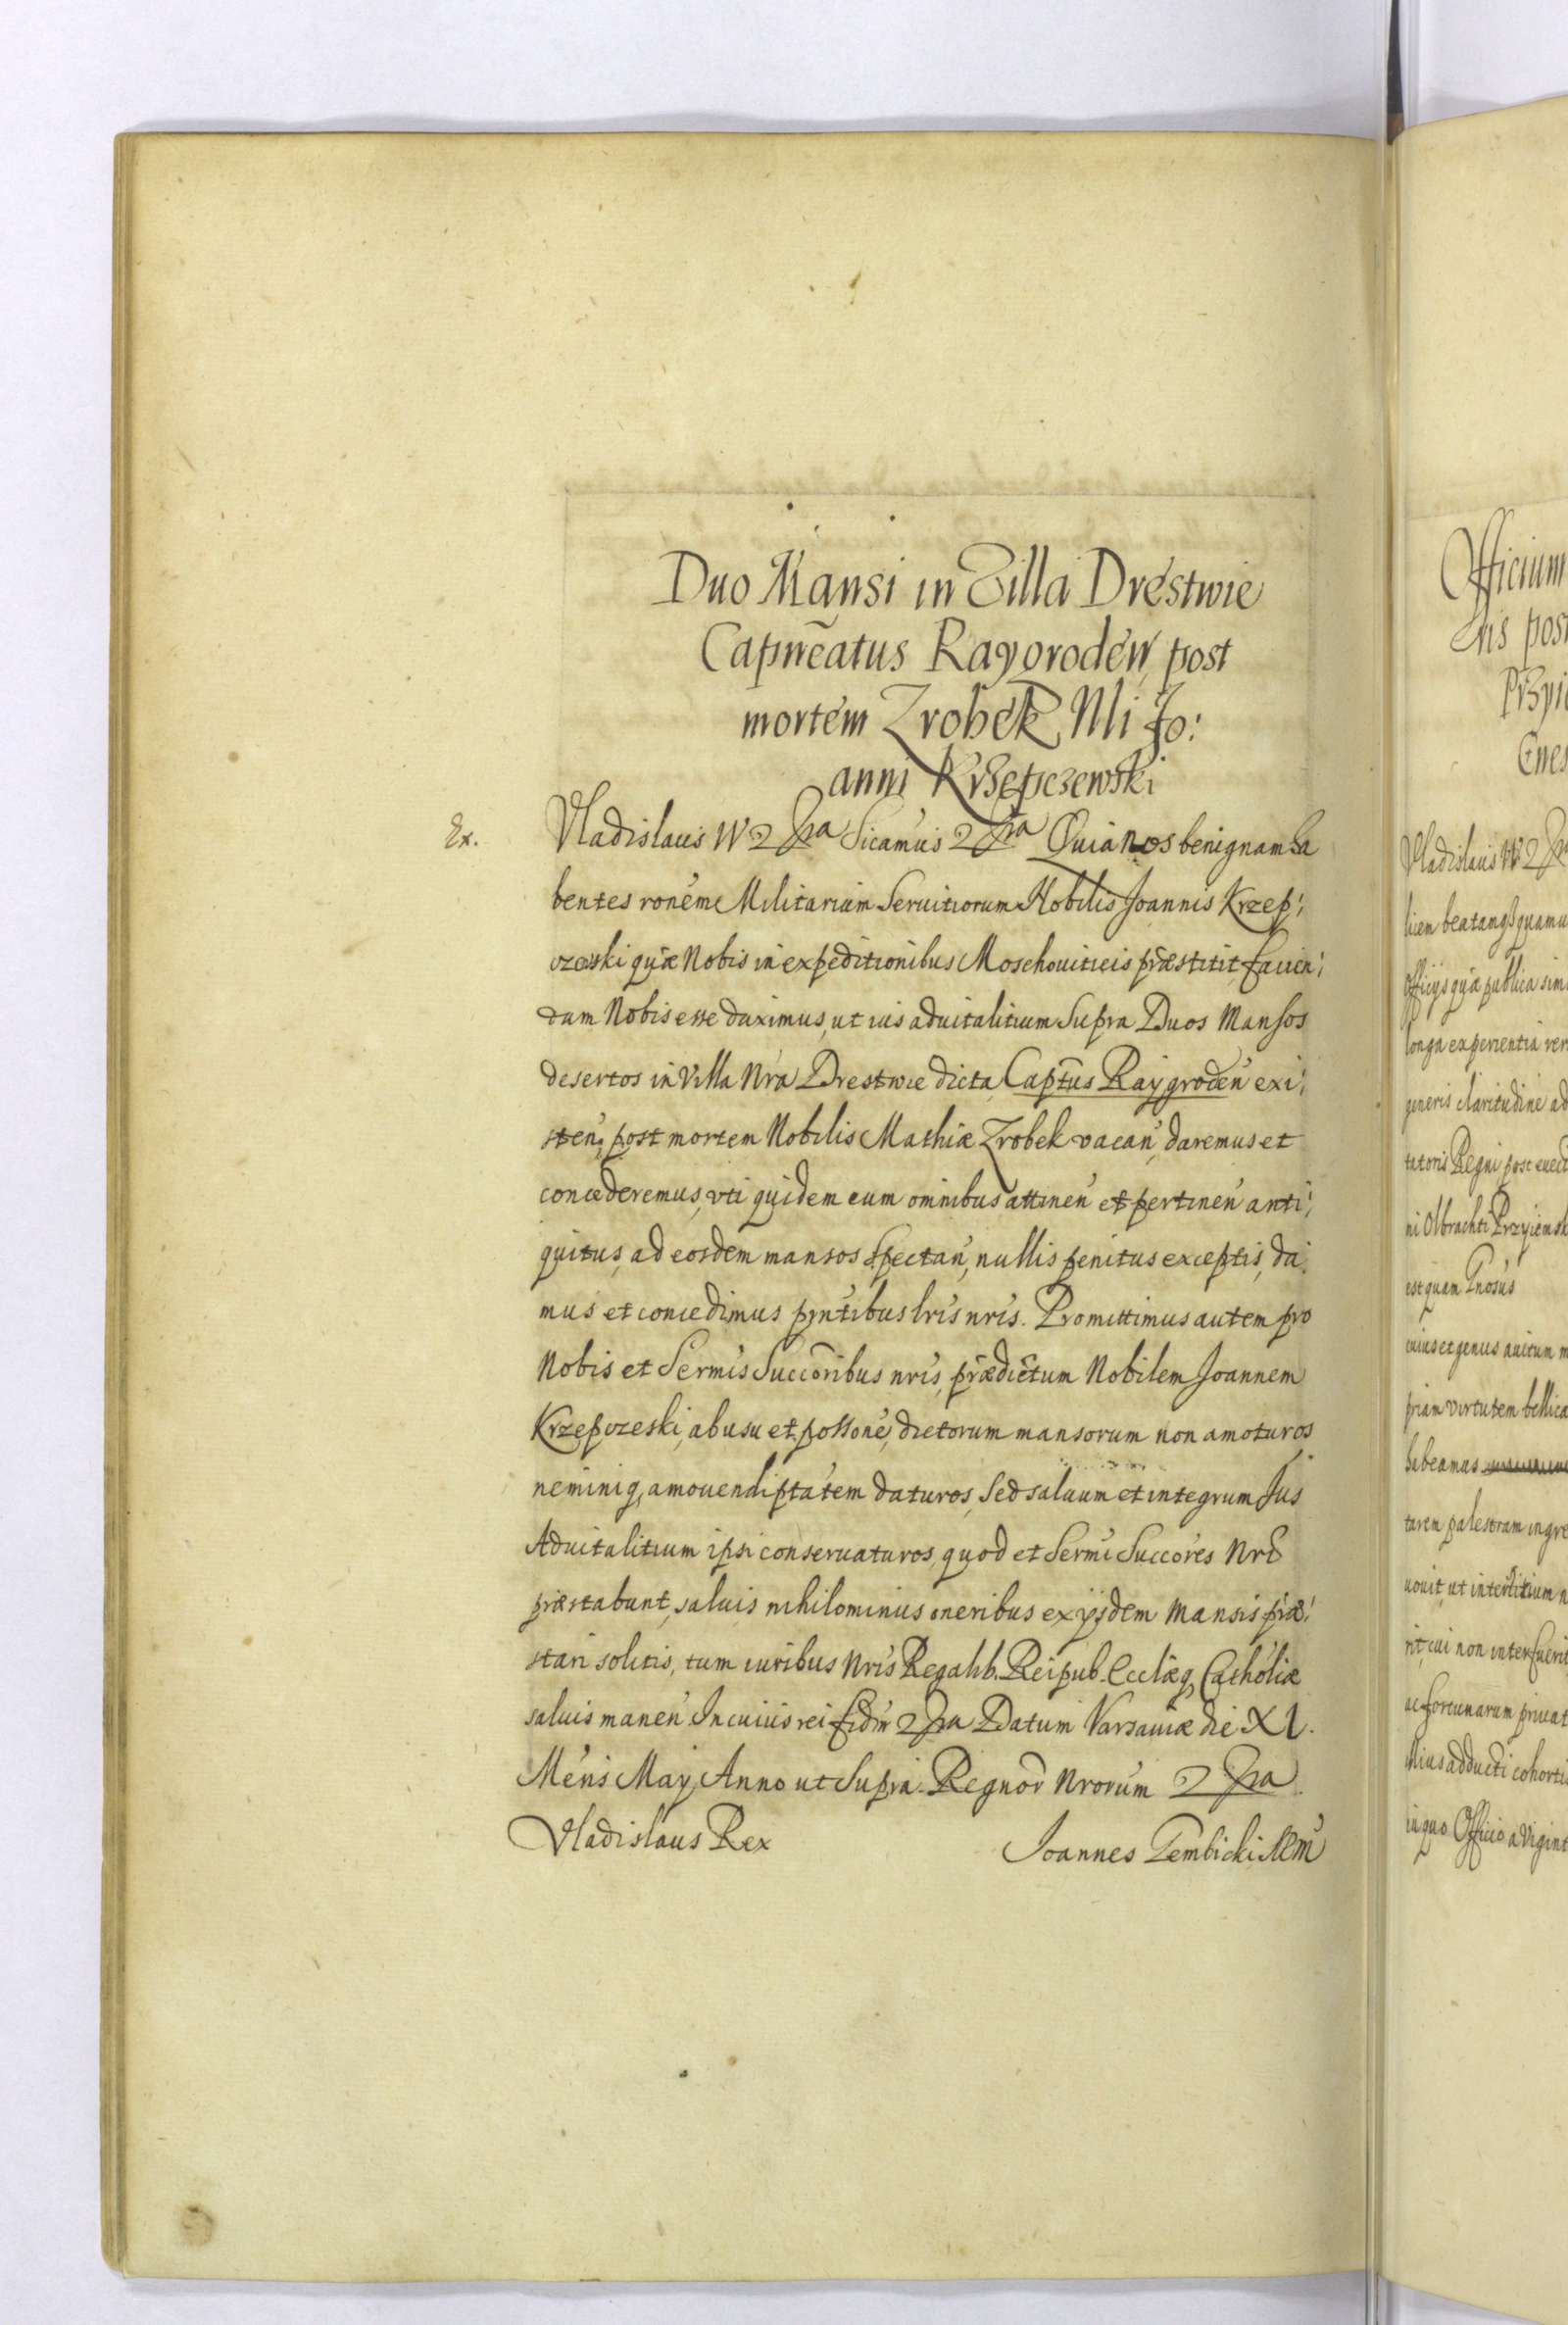 Duo Mansi in Villa Drestwie
Capneatus Raygroden, post
mortem Zrobek Nli Jo:
anni Krzepczewski
Ex.
Vladislaus IV Sicamus Quia nos benignam ha
bentes ronem Militarium Seruitiorum Nobilis Joannis Krzep:
czeski quæ Nobis in expeditionibus Moschouiticis præstitit, facien:
dum Nobis esse duximus, ut ius aduitalitium Supra Duos Mansos
desertos in Villa Nra Drestwie dicta, Captus Raygroden exi:
sten, post mortem Nobilis Mathiæ Zrobek vacan, daremus et
concederemus, vti quidem cum omnibus attinen et pertinen anti:
quitus, ad eosdem mansos Spectan, nullis penitus exceptis, da:
mus et concedimus pntibus lris nris. Promittimus autem pro
Nobis et Sermis Succoribus nris, prædictum Nobilem Joannem
Krzepczeski, ab usu et possone, dictorum mansorum non amoturos
neminiq, amouendi ptatem daturos, Sed saluum et integrum Jus
Aduitalitium ipsi conseruaturos, quod et Sermi Succores Nri
præstabunt, saluis nihilominus oneribus ex ijsdem Mansis præ:
stari solitis, tum iuribus Nris Regalib. Reipub. Ecclæq, Catholiæ
saluis manen In cuius rei fidem Datum Varsauiæ die XI.
Mens May, Anno ut Supra. Regnor Nrorum
Vladislaus Rex
Joannes Gembicki
Officium
pos
Vladislaus IV
officijs quæ publica
longa experientia
generis claritudine ad
Regni post
ni Olbrachti Przyiemsk
est quam
cuius et genus auitum m
priam virtutem bellica
habeamus
tarem palestram ingre
uouit, ut
rit, cui non interfuerit
ac fortunarum
adducti cohorti
in quo Officio a Vigint